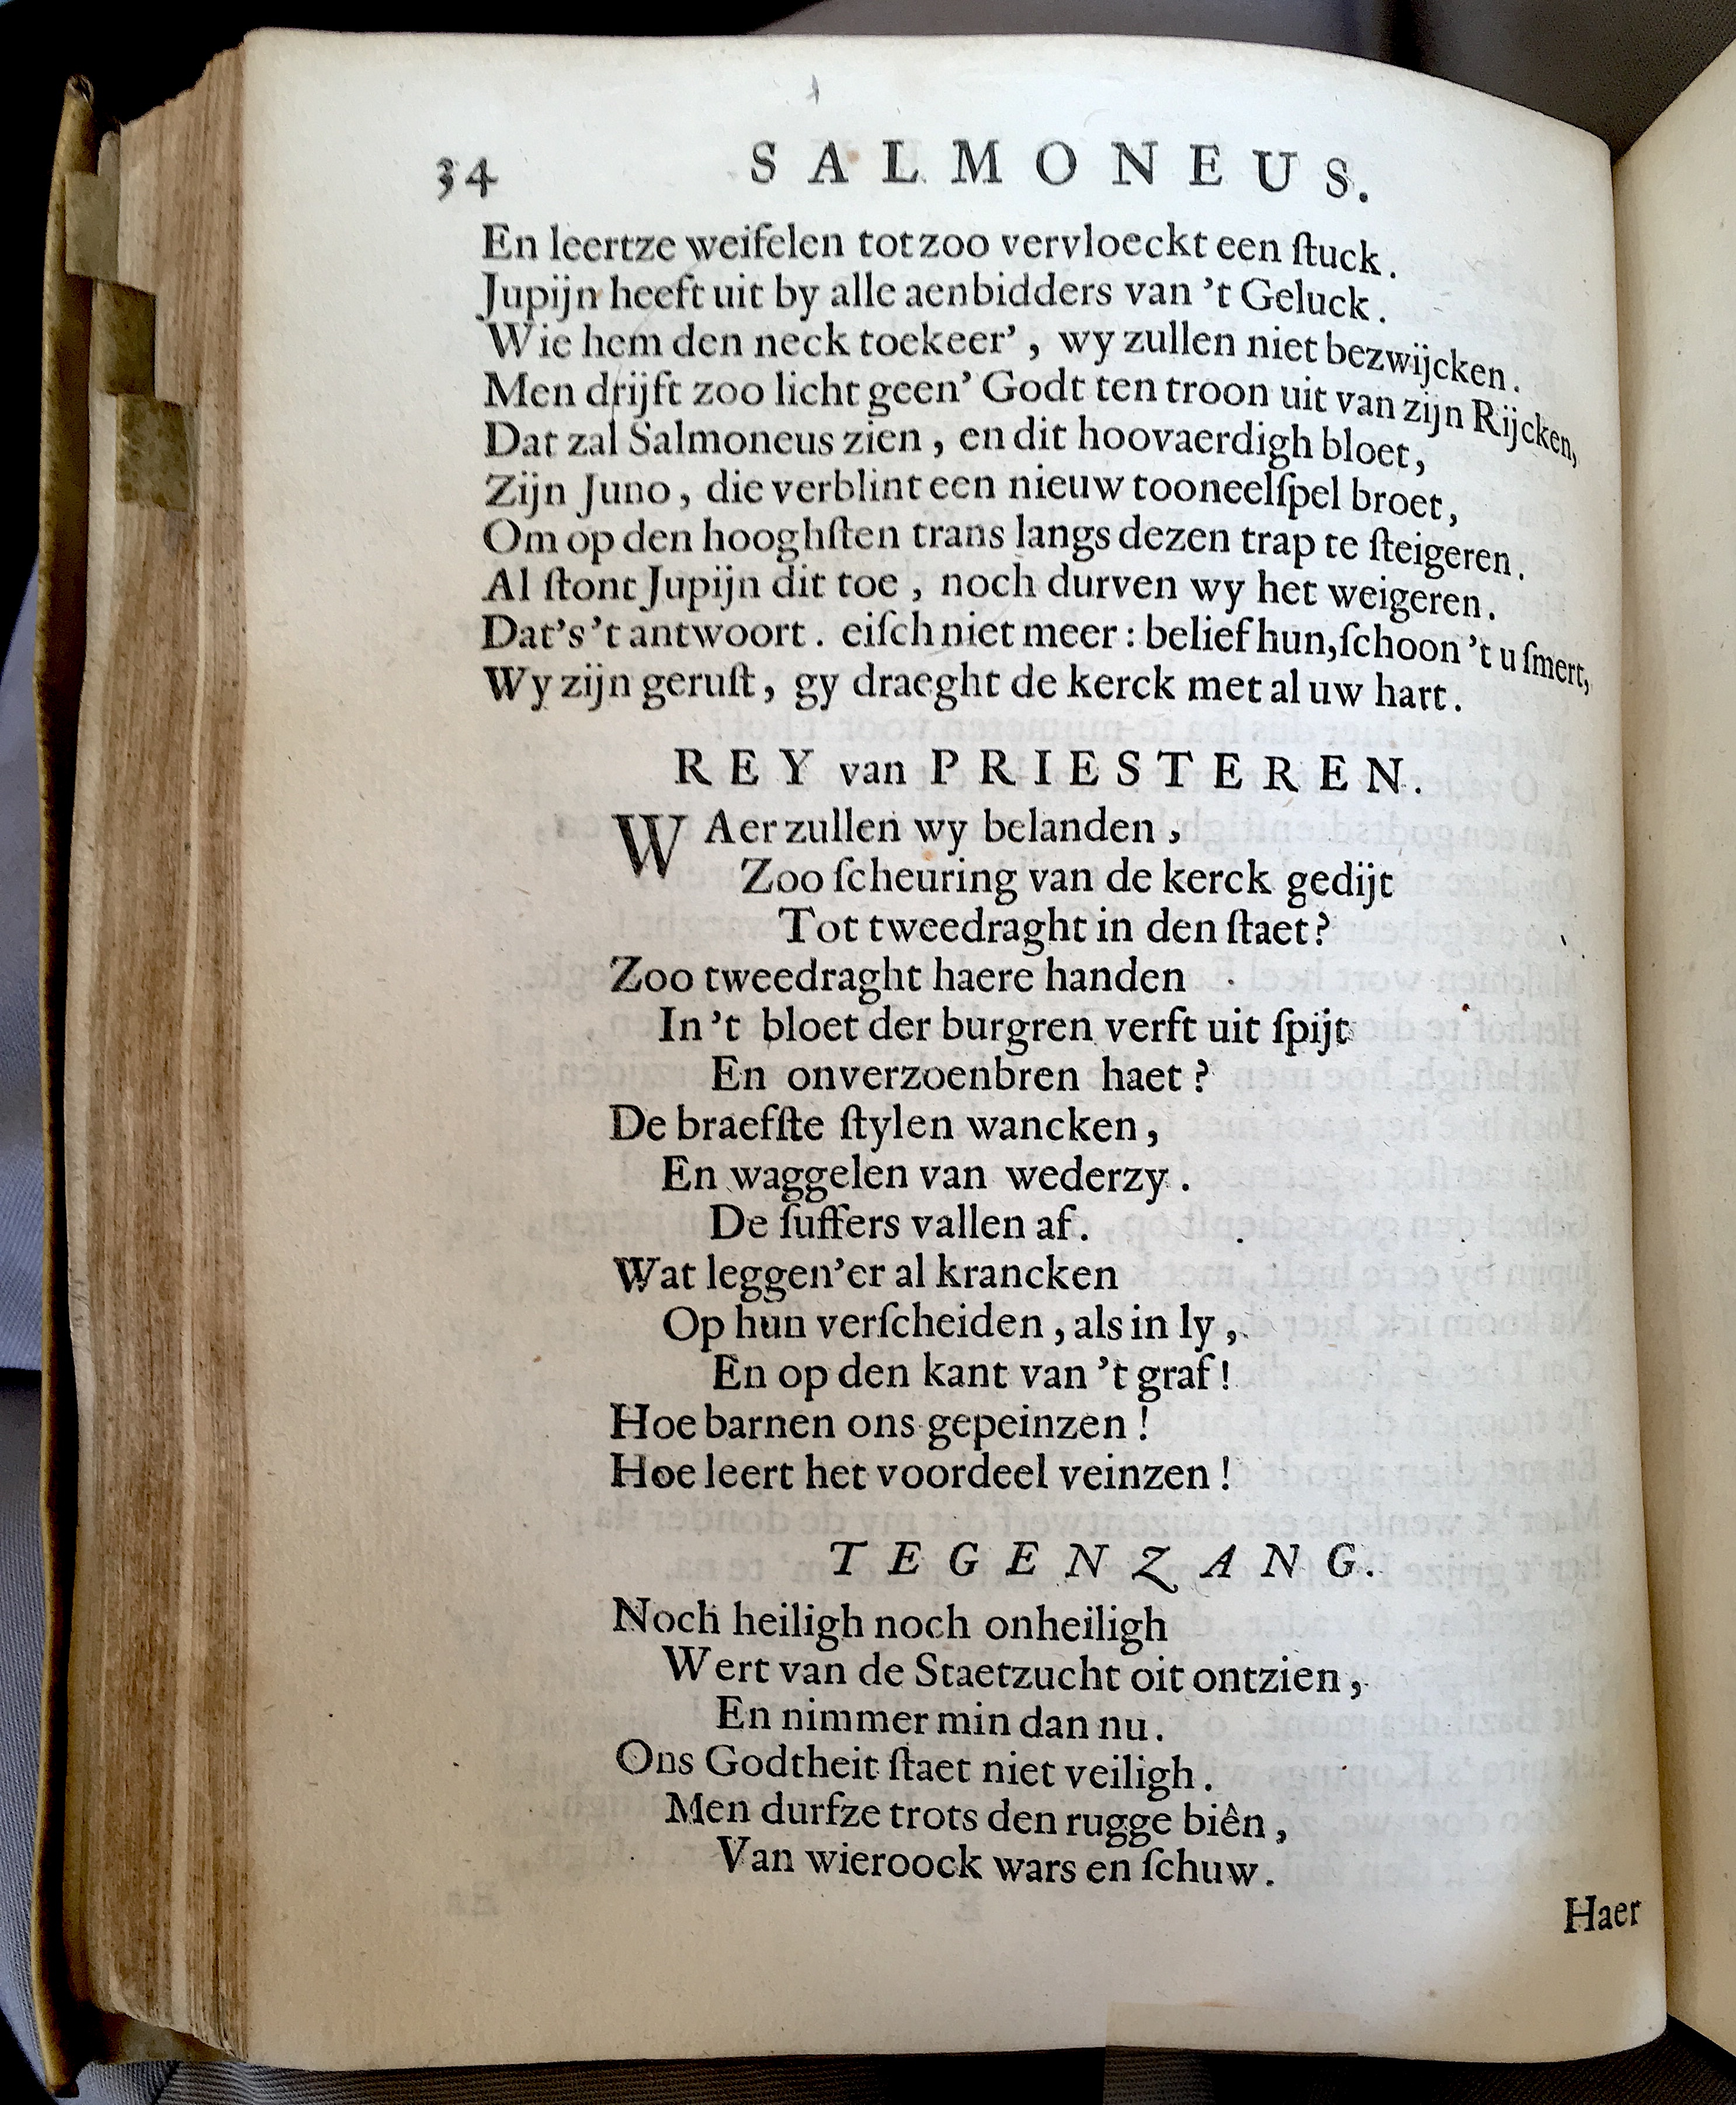 34 SALMONEUS.
En leertze weifelen tot zoo vervloeckt een ſtuck.
Jupijn heeft uit by alle aenbidders van 't Geluck.
Wie hem den neck toekeer', wy zullen niet bezwijcken.
Men drijft zoo licht geen' Godt ten troon uit van zijn Rijcken,
Dat zal Salmoneus zien, en dit hoovaerdigh bloet,
Zijn Juno, die verblint een nieuw tooneelſpel broet,
Om op den hooghſten trans langs dezen trap te ſteigeren.
Al ſtont Jupijn dit toe, noch durven wy het weigeren.
Dat's 't antwoort. eiſch niet meer: belief hun, ſchoon 't u ſmert,
Wy zijn geruſt, gy draeght de kerck met al uw hart.
REY van PRIESTEREN.
WAer zullen wy belanden,
Zoo ſcheuring van de kerck gedijt
Tot tweedraght in den ſtaet?
Zoo tweedraght haere handen
In 't bloet der burgren verft uit ſpijt
En onverzoenbren haet?
De braefſte ſtylen wancken,
En waggelen van wederzy.
De ſuffers vallen af.
Wat leggen'er al krancken
Op hun verſcheiden, als in ly,
En op den kant van 't graf!
Hoe barnen ons gepeinzen!
Hoe leert het voordeel veinzen!
TEGENZANG.
Noch heiligh noch onheiligh
Wert van de Staetzucht oit ontzien,
En nimmer min dan nu.
Ons Godtheit ſtaet niet veiligh.
Men durfze trots den rugge biên,
Van wieroock wars en ſchuw.
Haer